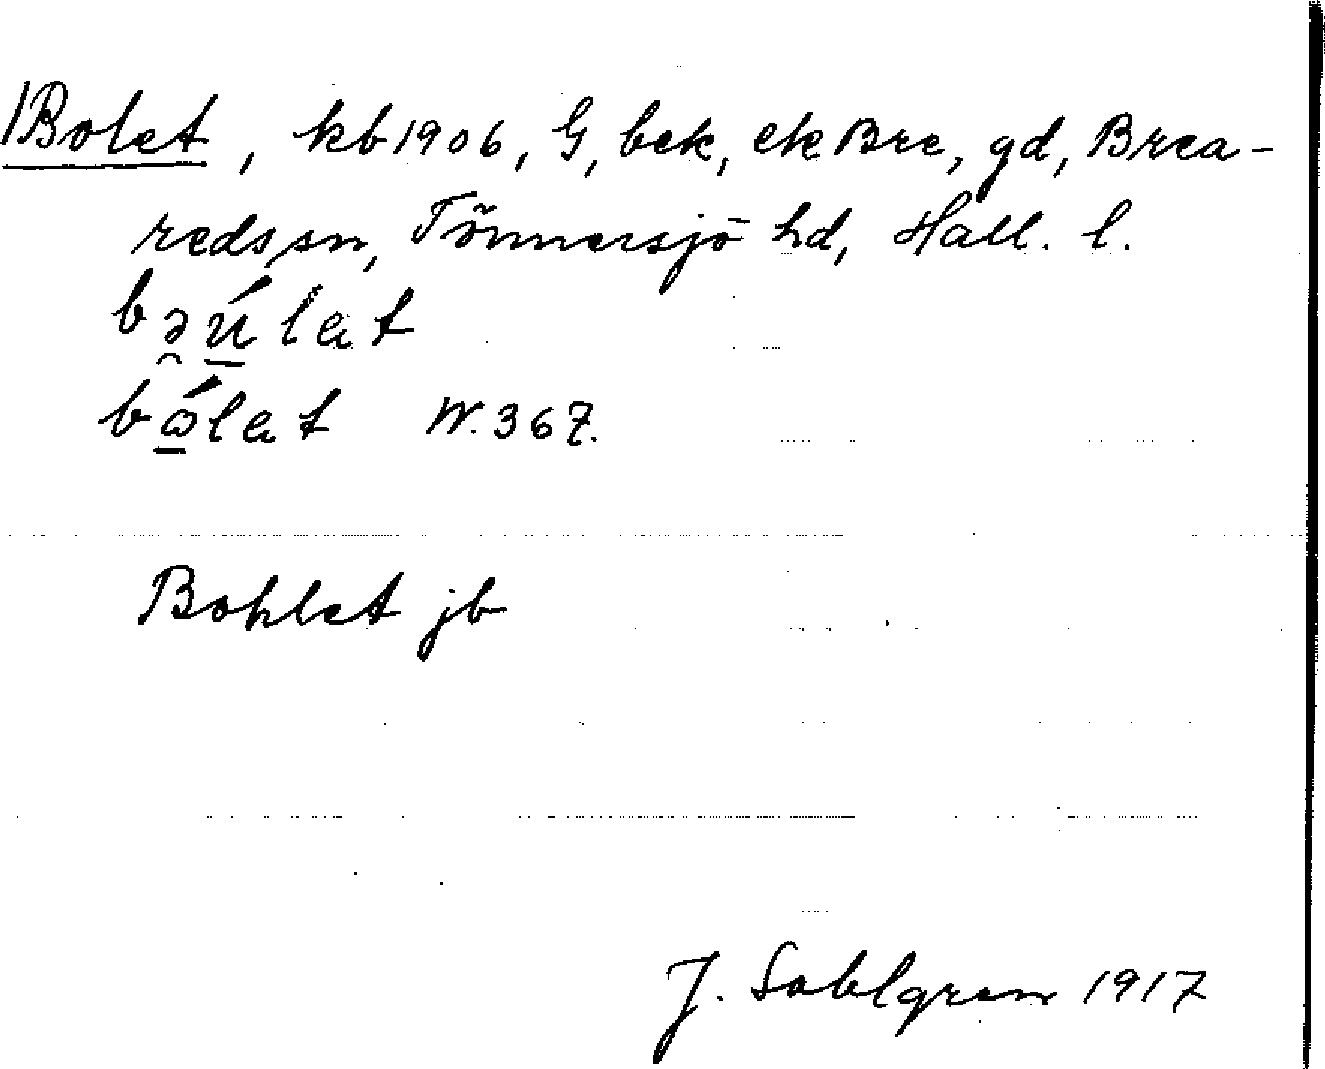 Bolet, kb 1906, G, bek, ek Bre, gd, Brea-
reds sn, Tönnersjö hd, Hall. l.
bə̯ú̲let
bó̲let W. 367.
Bohlet jb
J. Sahlgren 1917